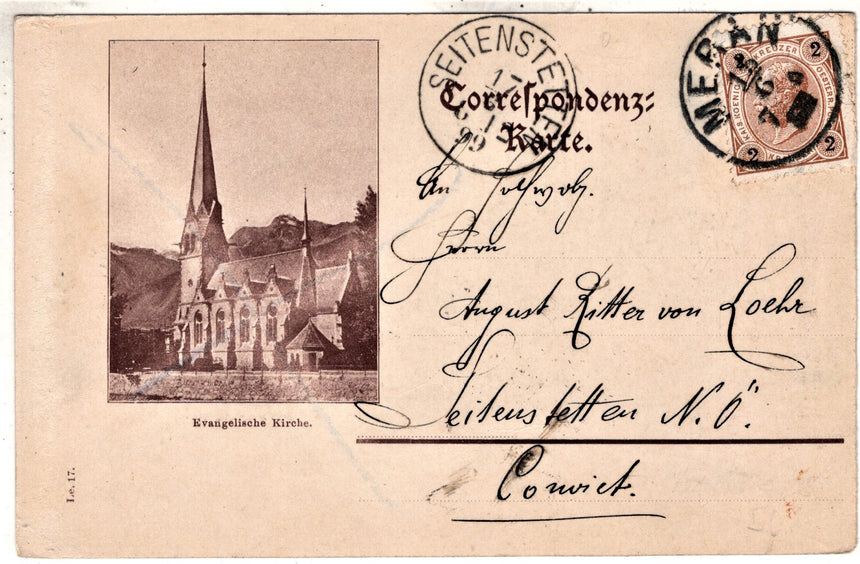 SEITENSTETTEN
17
99
Correspondenz-
Karte.
MERAN
2
KREUZER
2
2
2
An Hochwolg.
Herrn
August Ritter von Loehr
Seitenstetten N.Ö.
Convict.
Evangelische Kirche.
Le. 17.